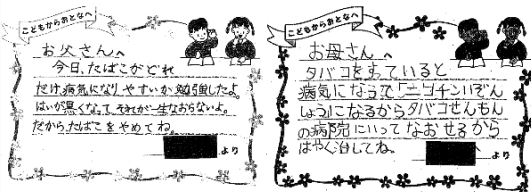 こどもからおとなへ
お父さんへ
今日、たばこがどれ
だけ病気になりやすいか勉強したよ。
はいが黒くなって、それが一生なおらないよ。
だから、たばこをやめてね。
より
こどもからおとなへ
お母さんへ
タバコをすっていると
病気になるで「ニコチンいぞん
しょうになるからタバコせんもん
の病院にいってなおせるから
はやく治してね。
より